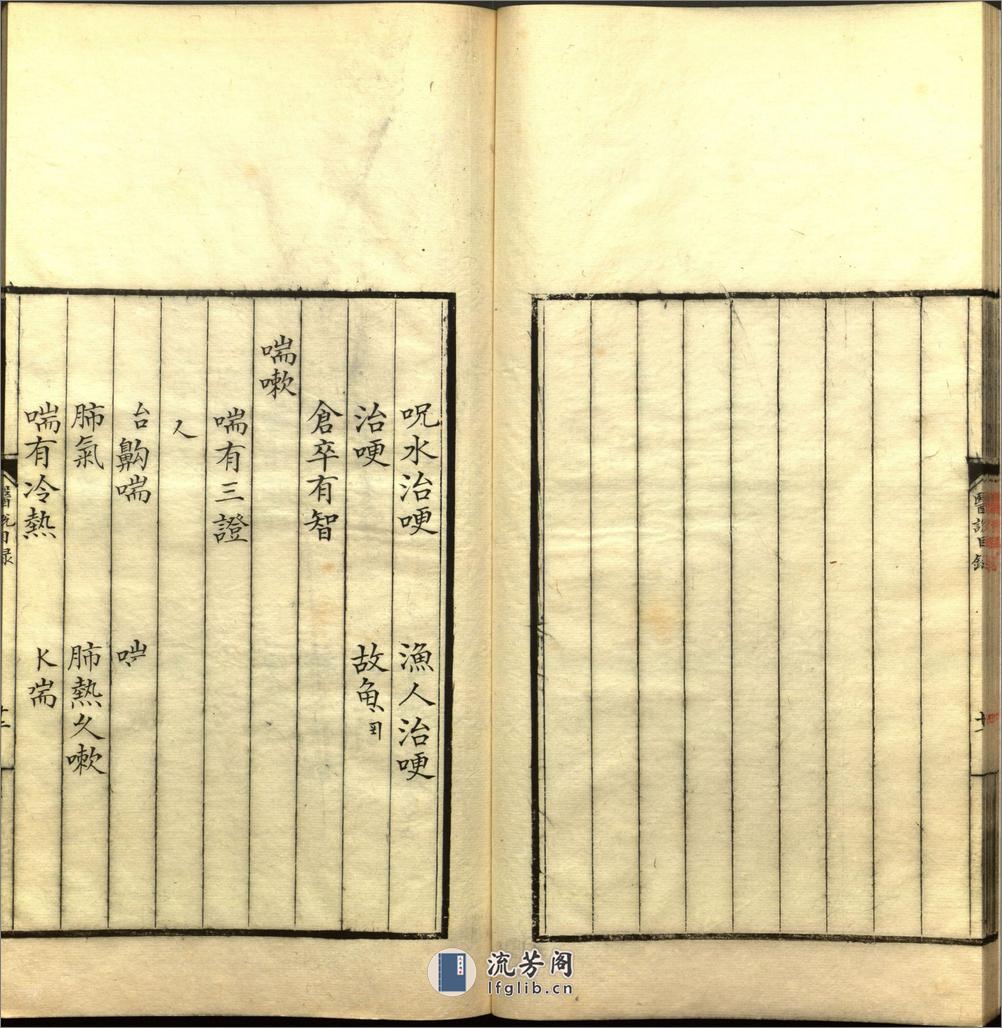 醫說目錄
十一
呪水治哽
漁人治哽
治哽
故魚
倉卒有智
喘嗽
喘有三證
齁喘
喘
肺氣
肺熱久嗽
喘有冷熱
喘
醫說目錄
十二
流芳阁
lfglib.cn